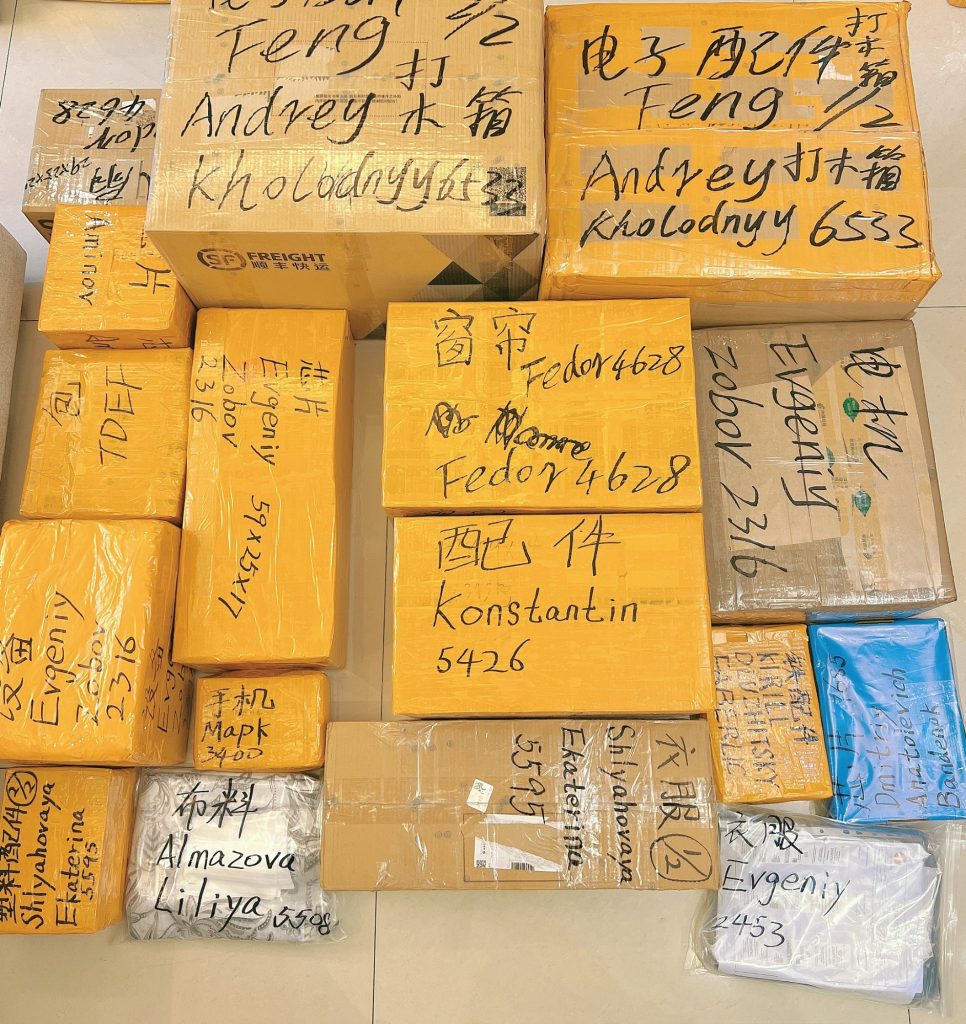 Feng 1/2
Andrey 打木箱
Kholodnyy 6533
SF FREIGHT
顺丰快运
电子配件 打木箱
Feng 1/2
Andrey 打木箱
Kholodnyy 6533
4628
片
Aminov
包
TDEF
芯片
Evgeniy
Zobov
2316
59×25×17
窗帘
Fedor 4628
Fedor 4628
电机
Evgeniy
Zobov 2316
配件
Konstantin
5426
设备
Evgeniy
Zobov
2316
手机
Mapk
3400
KIRILL
Dmitriy
Anatoievich
塑料配件
Shlyahovaya
Ekaterina
5595
布料
Almazova
Liliya 5508
衣服 1/2
Shlyahovaya
Ekaterina
5595
衣服
Evgeniy
2453